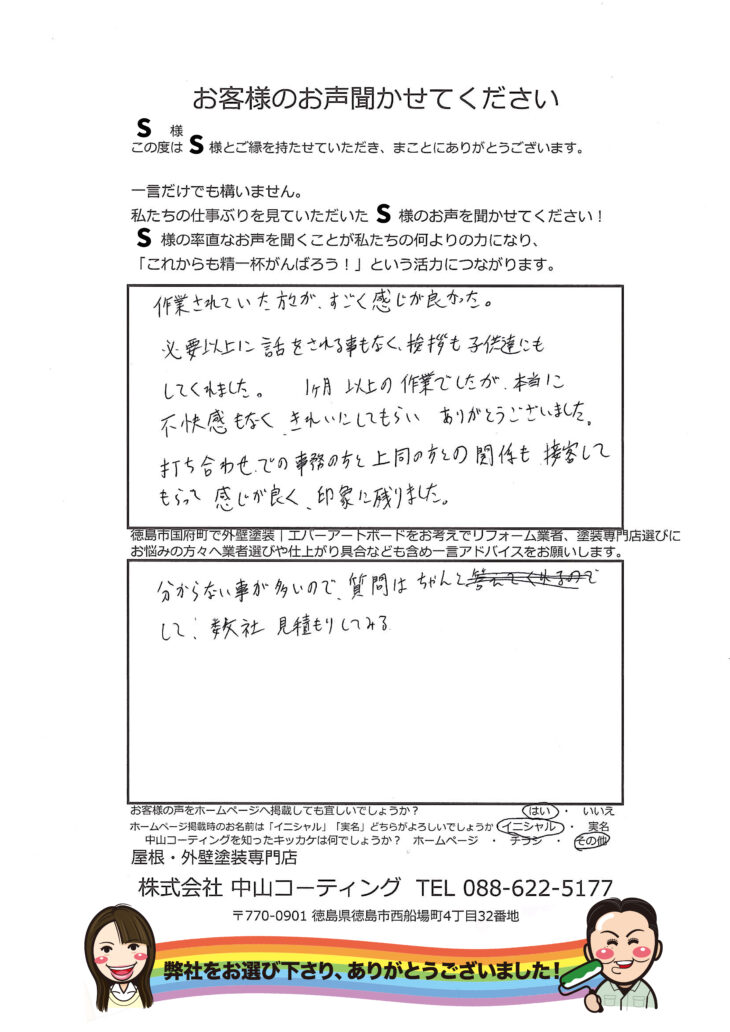 お客様のお声聞かせてください
S 様
この度は S 様とご縁を持たせていただき、まことにありがとうございます。
一言だけでも構いません。
私たちの仕事ぶりを見ていただいた S 様のお声を聞かせてください！
S 様の率直なお声を聞くことが私たちの何よりの力になり、
「これからも精一杯がんばろう！」という活力につながります。
作業されていた方が、すごく感じが良かった。
必要以上に話をされる事もなく、挨拶も子供達にも
してくれました。 1ヶ月以上の作業でしたが、本当に
不快感もなく、きれいにしてもらい ありがとうございました。
打ち合わせでの事務の方と上司の方との関係も、接客して
もらって 感じが良く、印象に残りました。
徳島市国府町で外壁塗装｜エバーアートボードをお考えでリフォーム業者、塗装専門店選びに
お悩みの方々へ業者選びや仕上がり具合なども含め一言アドバイスをお願いします。
分からない事が多いので、質問は ちゃんと答えてくれるので
して、数社 見積もりしてみる
お客様の声をホームページへ掲載しても宜しいでしょうか？ はい ・ いいえ
ホームページ掲載時のお名前は「イニシャル」「実名」どちらがよろしいでしょうか イニシャル ・ 実名
中山コーティングを知ったキッカケは何でしょうか？ ホームページ ・ チラシ ・ その他
屋根・外壁塗装専門店
株式会社 中山コーティング TEL 088-622-5177
〒770-0901 徳島県徳島市西船場町4丁目32番地
弊社をお選び下さり、ありがとうございました！